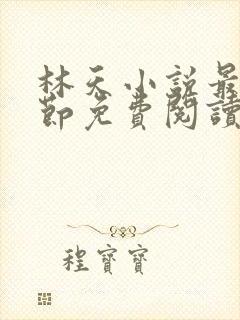 林天小说最
節免費閱讀
程寶寶